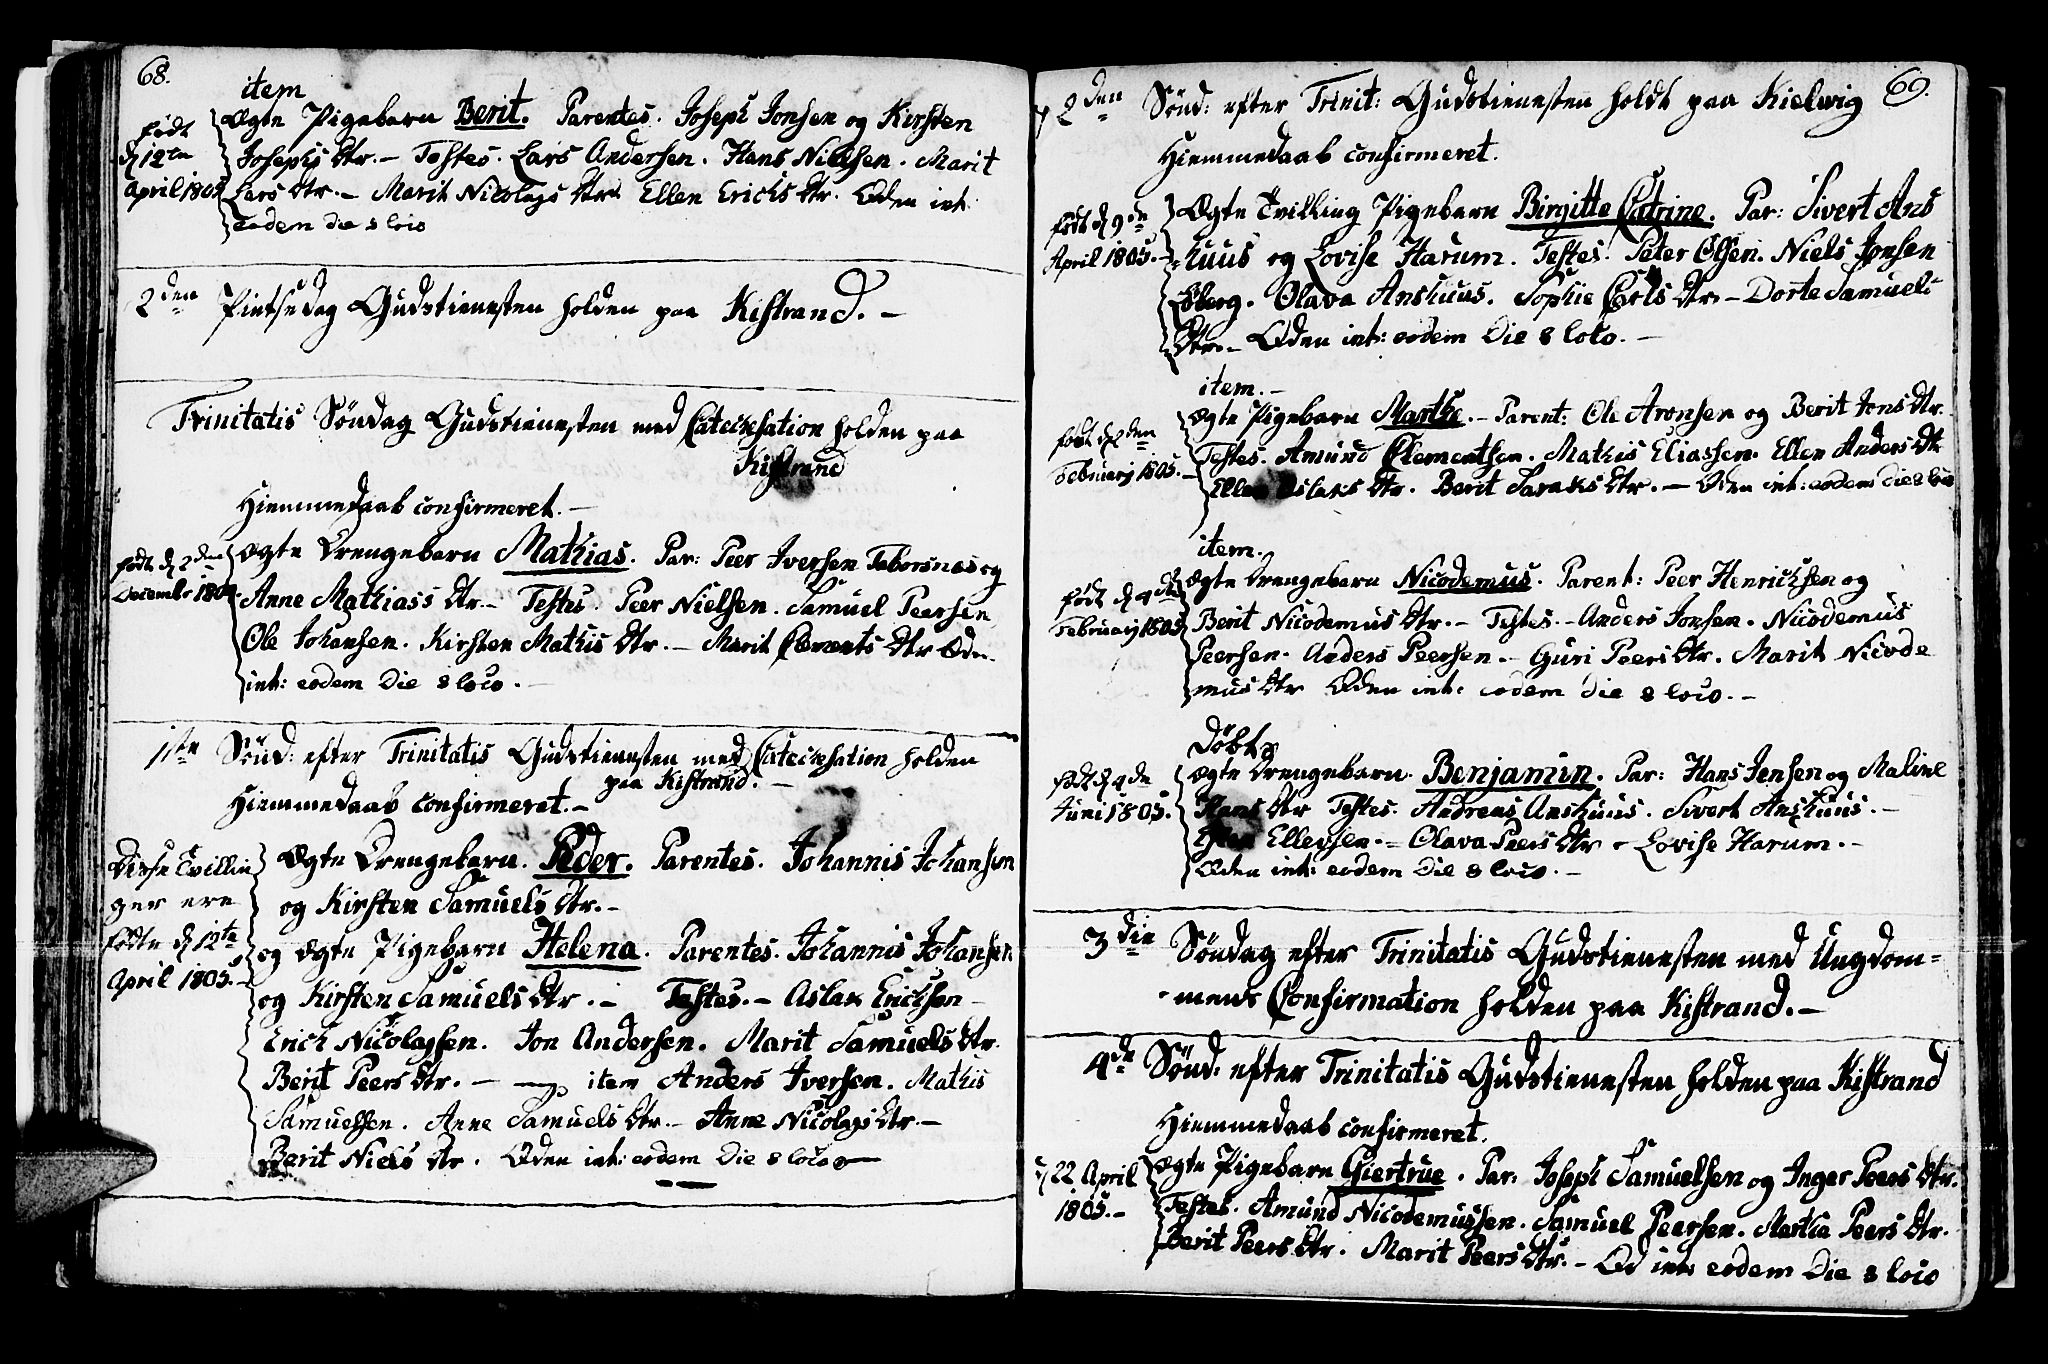 68.
item
Ægte Pigebarn Berit. Parentes. Joseph Jonsen og Kirsten
født
d 12te
April 1805
Josephs Dtr. – Testes. Lars Andersen. Hans Nielsen. Marit
Lars Dtr. – Marit Nicolays Dtr Ellen Erichs Dtr. Eden int:
eodem die & loco
2den Pintsedag Gudstienesten holden paa Kistrand. –
Trinitatis Søndag Gudstienesten med Catechesation holden paa
Kistrand
Hiemmedaab confirmeret. –
født d 2den
Decembr 1804
Ægte Drengebarn Mathias. Par: Peer Iversen Taborsnæs og
Anne Mathiass Dtr – Testes. Peer Nielsen. Samuel Peersen
Ole Johansen. Kirsten Mathis Dtr. – Marit Clements Dtr Eden
int: eodem die & loco. –
1ste Sönd: efter Trinitatis Gudstienesten med Catechesation holden
paa Kistrand. –
Hiemmedaab confirmeret. –
Disse Tvillin
ger ere
fødte d 12te
April 1805. –
Ægte Drengebarn. Peder. Parentes. Johannis Johansen
og Kirsten Samuels Dtr. –
og ægte Pigebarn Helena. Parentes. Johannis Johansen
og Kirsten Samuels Dtr. – Testes. – Aslak Ericksen –
Erich Nicolaysen. Jon Andersen. Marit Samuels Dtr.
Berit Peers Dtr. – item Anders Iversen. Mathis
Samuelsen. Anne Samuels Dtr. – Anne Nicolays Dtr. –
Berit Niels Dtr. Eden int: eodem Die & loco –
69.
2den Sönd: efter Trinit: Gudstienesten holdt paa Kielwig
Hiemmedaab confirmeret.
født d 9de
April 1805. –
Ægte Tvilling Pigebarn Birgitte Catrine. Par: Sivert Ans
huus og Lovise Harum. Testes. Peter Olsen. Niels Jonsen
Esberg. Olava Anshuus. Sophie Carls Dtr. – Dorte Samuels
Dtr. – Eden int: eodem Die & loco. –
item. –
født d 2den
February 1805. –
Ægte Pigebarn Marthe. – Parent: Ole Aronsen og Berit Jons Dtr.
Testes. Amund Clementsen. Mathis Eliassen. Ellen Anders Dtr
Ellen Aslaks Dtr. Berit Saraks Dtr. – Eden int: eodem die & loco
item.
født d 4de
February 1805
Ægte Drengebarn Nicodemus. Parent: Peer Henrichsen og
Berit Nicodemus Dtr. – Testes. – Anders Jonsen. Nicodemus
Peersen. Anders Peersen. – Guri Peers Dtr. Marit Nicode
mus Dtr Eden int: eodem die & loco. –
Döbt
født d 4de
Juni 1805.
ægte Drengebarn. Benjamin. Par: Hans Jensen og Maline
Hans Dtr Testes. Andreas Anshuus. Sivert Anshuus. –
Ellevsen. – Olava Peers Dtr – Lovise Harum. –
Eden int: eodem Die & loco. –
3die Söndag efter Trinitatis Gudstienesten med Ungdom=
mens Confirmation holden paa Kistrand. –
4de Sönd: efter Trinitatis Gudstienesten holden paa Kistrand
Hiemmedaab confirmeret.
d 22 April
1805. –
ægte Pigebarn Giertrue. Par: Joseph Samuelsen og Inger Peers Dtr.
Testes. Amund Nicodemussen. Samuel Peersen. Martha Peers Dtr.
Berit Peers Dtr. Marit Peers Dtr. – Ed int: eodem Die & loco